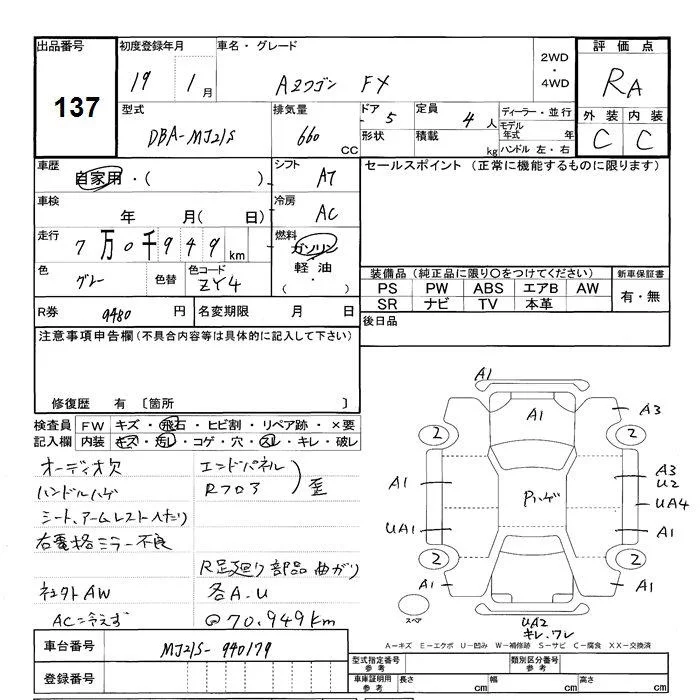 出品番号
137
初度登録年月
19 1月
車名・グレード
AZワゴン FX
2WD
・
4WD
評価点
RA
外装 内装
C C
型式
DBA-MJ21S
排気量
660 CC
ドア 5
形状
定員 4人
積載 kg
ディーラー・並行
モデル年式 年
ハンドル 左・右
車歴
自家用・( )
シフト
AT
車検
年 月( 日)
冷房
AC
走行
7万0千949km
燃料
ガソリン
軽油
( ・ )
色
グレー
色替
色コード
ZY4
R券 9480円
名変期限 月 日
セールスポイント (正常に機能するものに限ります)
装備品(純正品に限り○をつけてください)
PS PW ABS エアB AW
SR ナビ TV 本革
新車保証書
有・無
後日品
注意事項申告欄(不具合内容等は具体的に記入して下さい)
修復歴 有 〔箇所 〕
検査員記入欄
FW キズ・飛石・ヒビ割・リペア跡・×要
内装 キズ・汚レ・コゲ・穴・スレ・キレ・破レ
オーディオ欠
ハンドルハゲ
シート、アームレスト入たり
右電格ミラー不良
社外AW
AC=冷えず
エンドパネル
Rフロア
歪
R足廻り部品曲がり
各A.U
@70,949km
A1
A1
A3
2
2
A1
A3
U2
Pハゲ
UA4
UA1
A1
2
2
A1
A1
スペア
UA2
キレ、ワレ
A-キズ E-エクボ U-凹み W-補修跡 S-サビ C-腐食 XX-交換済
車台番号
MJ21S-940179
登録番号
型式指定番号
参考
類別区分番号
参考
車庫証明用
参考
長さ cm
幅 cm
高さ cm